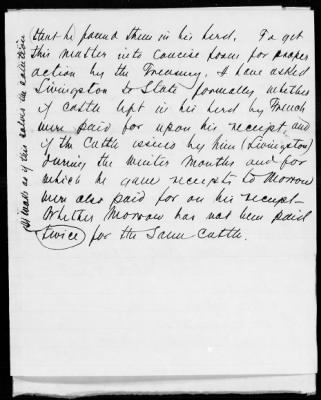 that he found them in his herd. To get
this matter into concise form for proper
action by the Treasury. I have asked
Livingston to State formally whether
if cattle left in his herd by French
were paid for upon his receipt, and
if the Cattle issued by him (Livingston)
during the winter months and for
which he gave receipts to Morrow
were also paid for on his receipt—
Whether Morrow has not been paid
twice for the Same Cattle.
as if this solves the solution